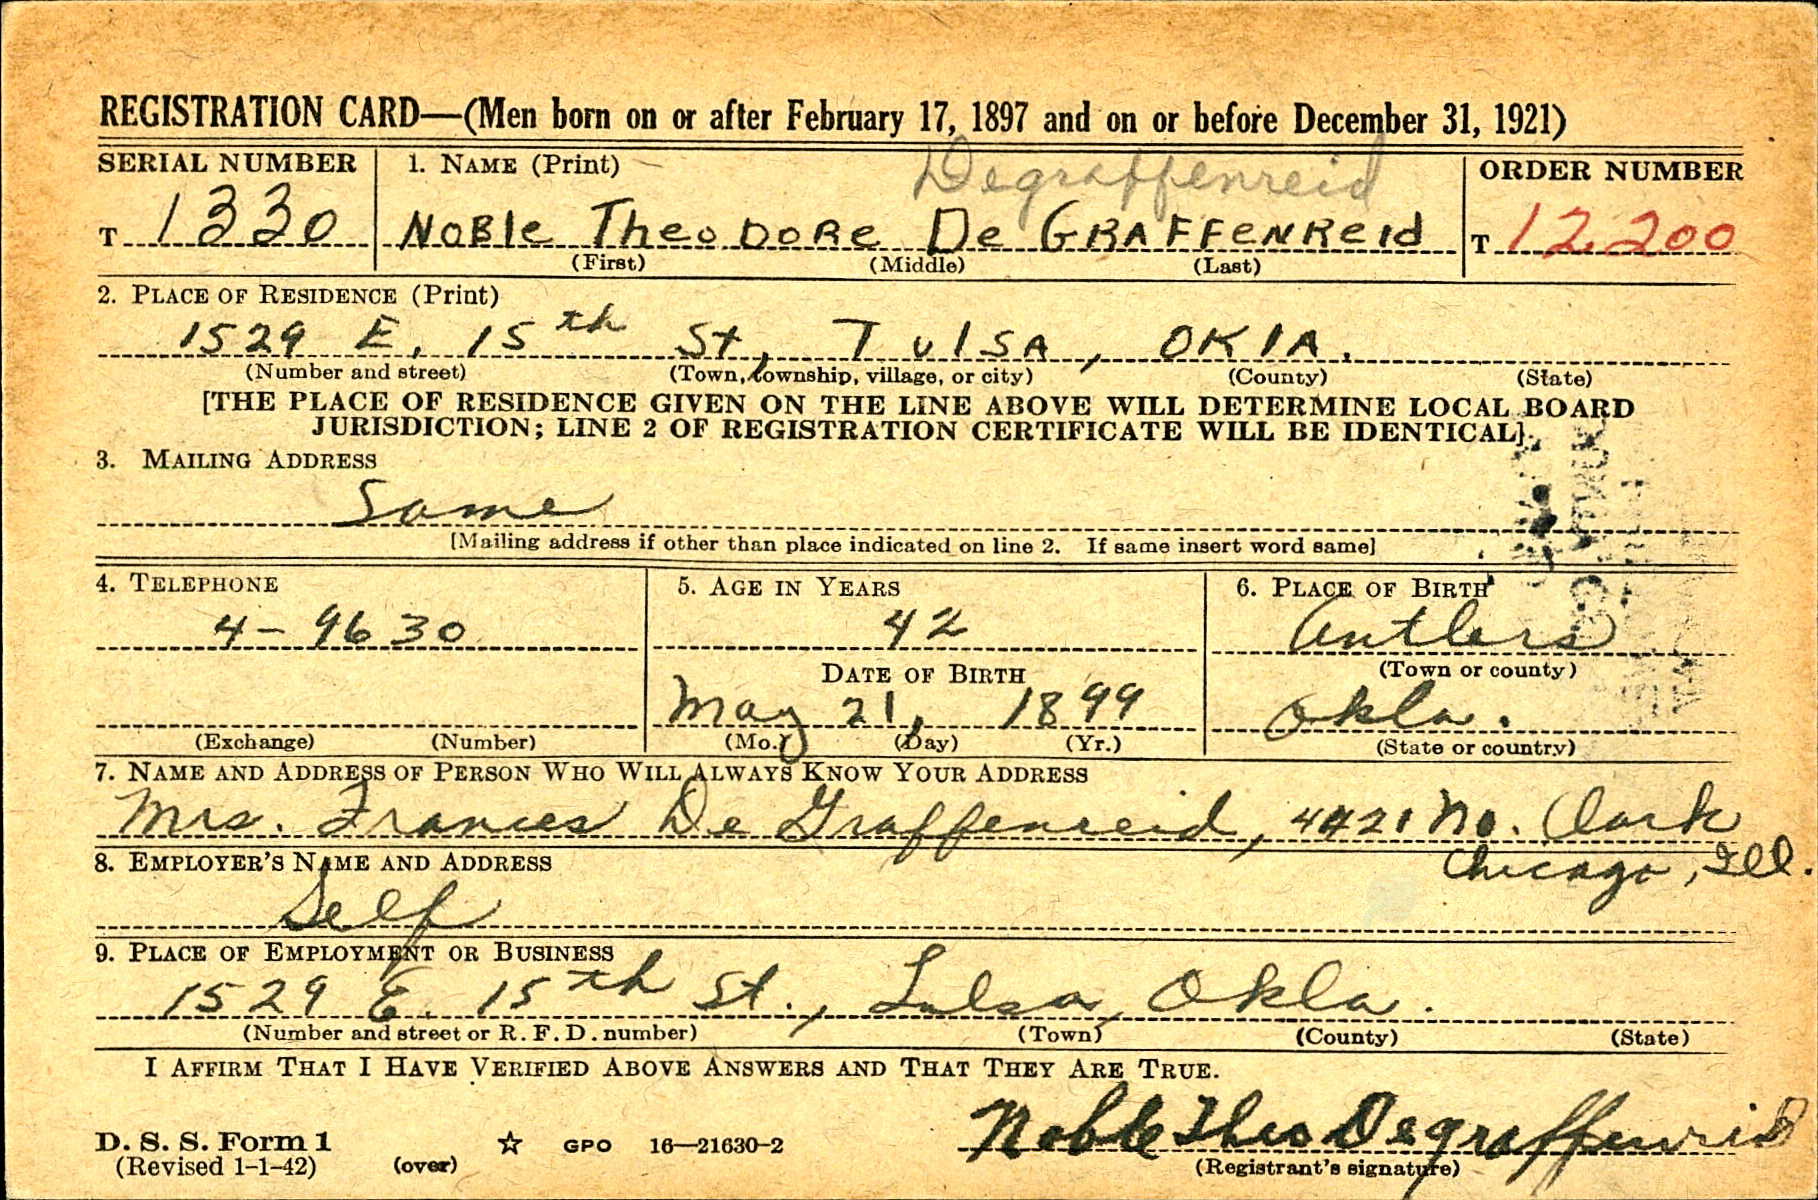 REGISTRATION CARD—(Men born on or after February 17, 1897 and on or before December 31, 1921)
SERIAL NUMBER 1. NAME (Print) Degraffenreid ORDER NUMBER
T 1330 NOBLE THEODORE De GRAFFENReid T 12200
(First) (Middle) (Last)
2. PLACE OF RESIDENCE (Print)
1529 E. 15th St, TulSA, OKlA.
(Number and street) (Town, township, village, or city) (County) (State)
[THE PLACE OF RESIDENCE GIVEN ON THE LINE ABOVE WILL DETERMINE LOCAL BOARD
JURISDICTION; LINE 2 OF REGISTRATION CERTIFICATE WILL BE IDENTICAL].
3. MAILING ADDRESS
Same
[Mailing address if other than place indicated on line 2. If same insert word same]
4. TELEPHONE 5. AGE IN YEARS 6. PLACE OF BIRTH
4-9630 42 Antlers
DATE OF BIRTH (Town or county)
May 21, 1899 Okla.
(Exchange) (Number) (Mo.) (Day) (Yr.) (State or country)
7. NAME AND ADDRESS OF PERSON WHO WILL ALWAYS KNOW YOUR ADDRESS
Mrs. Frances De Graffenreid, 4421 No. Clark
Chicago, Ill.
8. EMPLOYER'S NAME AND ADDRESS
Self
9. PLACE OF EMPLOYMENT OR BUSINESS
1529 E. 15th St., Tulsa, Okla.
(Number and street or R. F. D. number) (Town) (County) (State)
I AFFIRM THAT I HAVE VERIFIED ABOVE ANSWERS AND THAT THEY ARE TRUE.
Noble Theo Degraffenreid
D. S. S. Form 1
(Revised 1-1-42) (over) ☆ GPO 16—21630-2
(Registrant's signature)